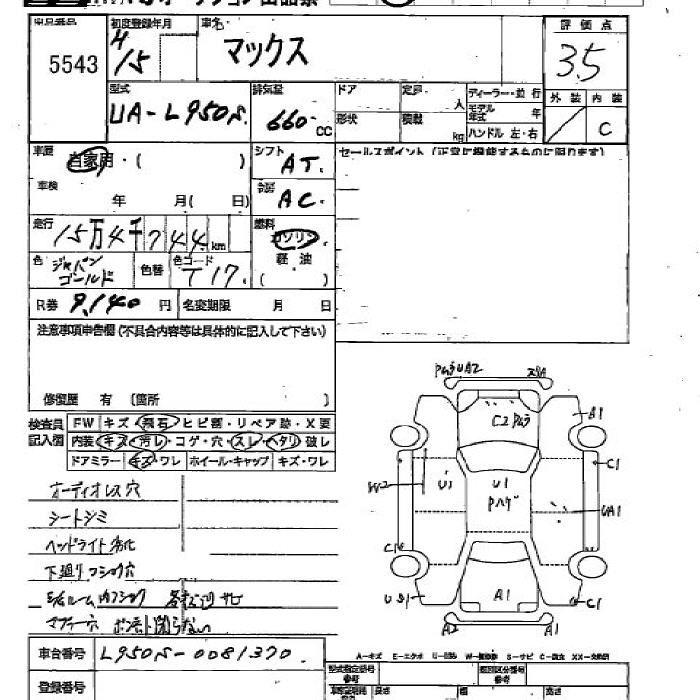 出品番号 初度登録年月 車名 評価点
5543 4/15 マックス 3.5
型式 排気量 ドア 定員 人 ディーラー・並行 外装 内装
UA-L950S 660 CC 形状 積載 kg モデル年式 年 C
ハンドル 左・右
車歴 自家用・( ) シフト AT. セールスポイント (正常に機能するものに限ります)
車検 年 月( 日) 冷房 AC.
走行 15万4千744 km 燃料 ガソリン
色 ジャパンゴールド 色替 色コード T17. 軽油
( )
R券 9,140 円 名変期限 月 日
注意事項申告欄 (不具合内容等は具体的に記入して下さい)
修復歴 有 (箇所 )
検査員記入欄 FW キズ・飛石・ヒビ割・リペア跡・X要
内装 キズ・汚レ・コゲ・穴・スレ・ヘタリ・破レ
ドアミラー キズ・ワレ ホイール・キャップ キズ・ワレ
オーディオレス穴
シートシミ
ヘッドライト劣化
下廻り
サビ
マフラー 閉らない
車台番号 L950S-0081370
登録番号
UA2
C2
B1
C1
W2 U1 U1 Pハゲ UA1
C1
A1 C1
A2 A1
A-キズ E-エクボ S-サビ
型式指定番号 参考 類別区分番号 参考
長さ 幅 高さ